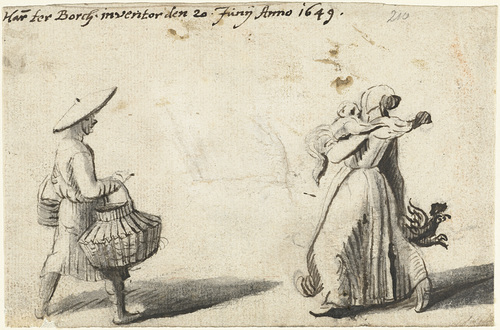 Har ter Borch · inventor den 20 · Junij Anno 1649 ·
210